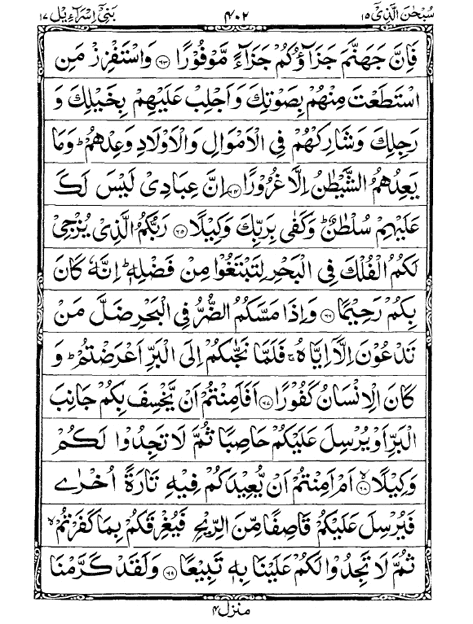 سُبْحٰنَ الَّذِیْۤ ۱۵ ۴۰۲ بَنِیْۤ اِسْرَآءِیْل ۱۷
فَاِنَّ جَهَنَّمَ جَزَآؤُكُمْ جَزَآءً مَّوْفُوْرًا ۶۳ وَاسْتَفْزِزْ مَنِ
اسْتَطَعْتَ مِنْهُمْ بِصَوْتِكَ وَاَجْلِبْ عَلَیْهِمْ بِخَیْلِكَ وَ
رَجِلِكَ وَشَارِكْهُمْ فِی الْاَمْوَالِ وَالْاَوْلَادِ وَعِدْهُمْ ؕ وَمَا
یَعِدُهُمُ الشَّیْطٰنُ اِلَّا غُرُوْرًا ۶۴ اِنَّ عِبَادِیْ لَیْسَ لَكَ
عَلَیْهِمْ سُلْطٰنٌ ؕ وَكَفٰی بِرَبِّكَ وَكِیْلًا ۶۵ رَبُّكُمُ الَّذِیْ یُزْجِیْ
لَكُمُ الْفُلْكَ فِی الْبَحْرِ لِتَبْتَغُوْا مِنْ فَضْلِهٖ ؕ اِنَّهٗ كَانَ
بِكُمْ رَحِیْمًا ۶۶ وَاِذَا مَسَّكُمُ الضُّرُّ فِی الْبَحْرِ ضَلَّ مَنْ
تَدْعُوْنَ اِلَّاۤ اِیَّاهُ ۚ فَلَمَّا نَجّٰىكُمْ اِلَی الْبَرِّ اَعْرَضْتُمْ ؕ وَ
كَانَ الْاِنْسَانُ كَفُوْرًا ۶۷ اَفَاَمِنْتُمْ اَنْ یَّخْسِفَ بِكُمْ جَانِبَ
الْبَرِّ اَوْ یُرْسِلَ عَلَیْكُمْ حَاصِبًا ثُمَّ لَا تَجِدُوْا لَكُمْ
وَكِیْلًا ۶۸ اَمْ اَمِنْتُمْ اَنْ یُّعِیْدَكُمْ فِیْهِ تَارَةً اُخْرٰی
فَیُرْسِلَ عَلَیْكُمْ قَاصِفًا مِّنَ الرِّیْحِ فَیُغْرِقَكُمْ بِمَا كَفَرْتُمْ ۙ
ثُمَّ لَا تَجِدُوْا لَكُمْ عَلَیْنَا بِهٖ تَبِیْعًا ۶۹ وَلَقَدْ كَرَّمْنَا
منزل ۴